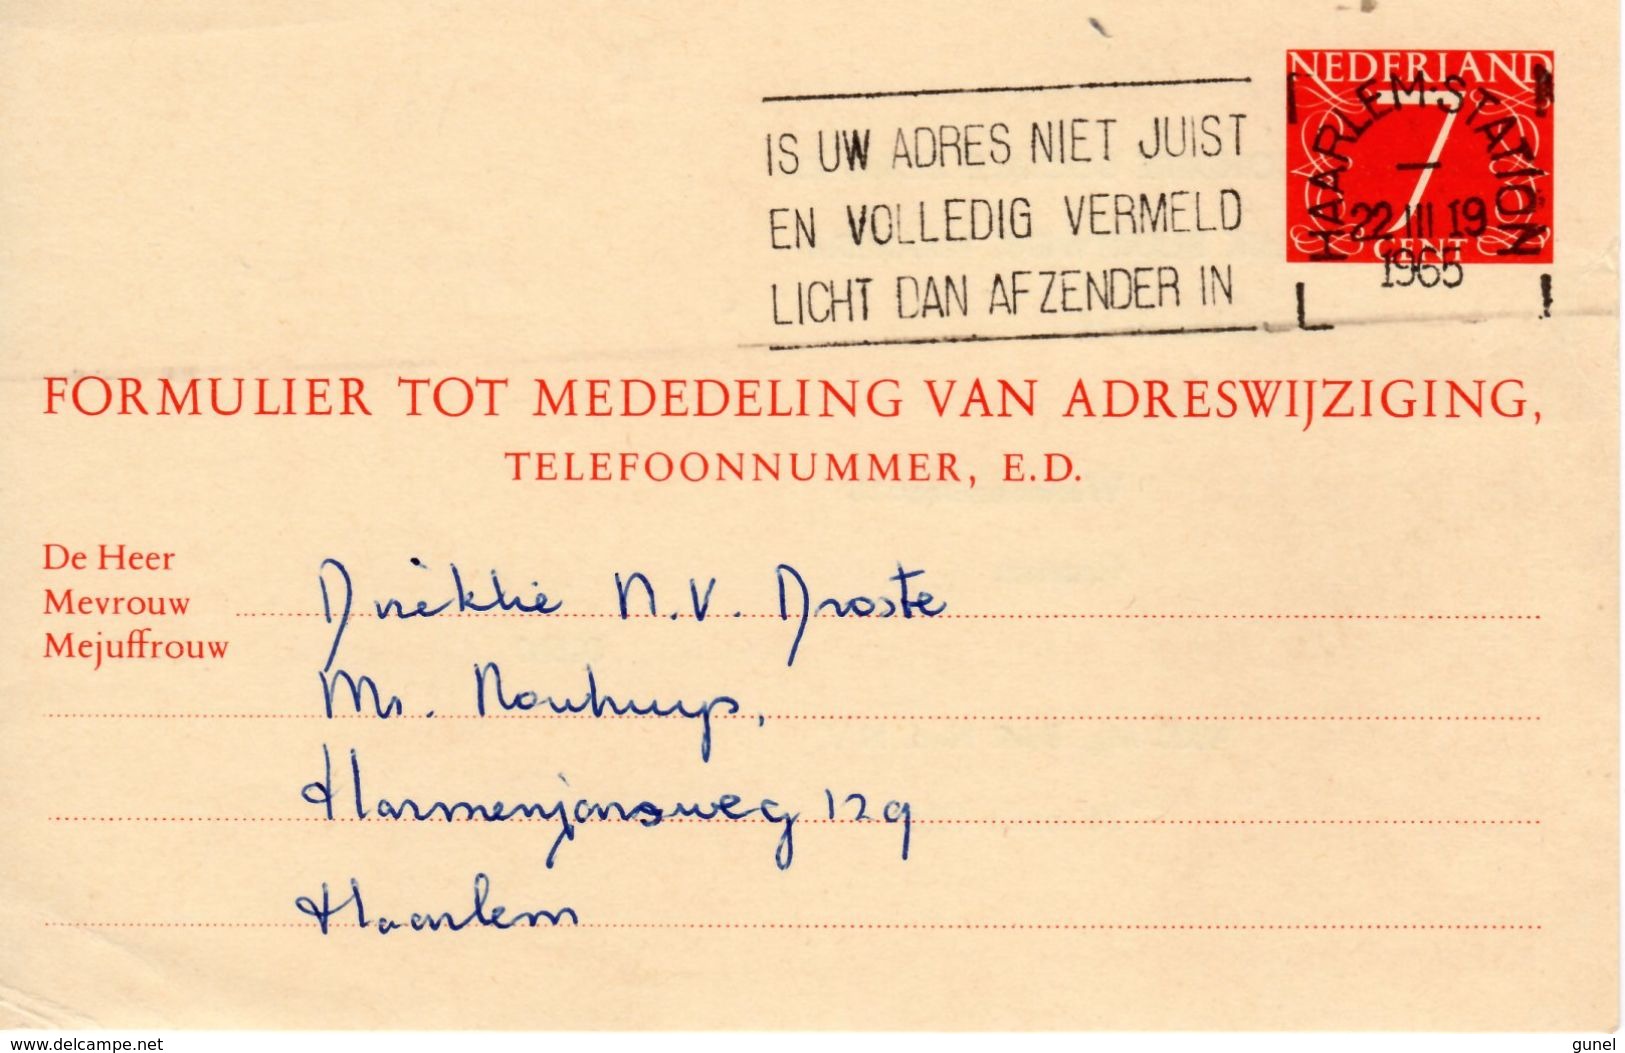 NEDERLAND
7
CENT
HAARLEM-STATION
22 III 19
1965
IS UW ADRES NIET JUIST
EN VOLLEDIG VERMELD
LICHT DAN AFZENDER IN
FORMULIER TOT MEDEDELING VAN ADRESWIJZIGING,
TELEFOONNUMMER, E.D.
De Heer
Mevrouw
Mejuffrouw
Direktie N.V. Droste
Mr. Nouhuys,
Harmenjansweg 129
Haarlem
www.delcampe.net
gunel